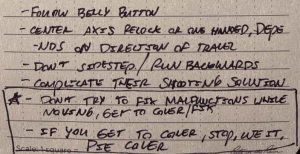 - FOLLOW BELLY BUTTON
- CENTER AXIS RELOCK OR ONE HANDED, DEPE
- NDS ON DIRECTION OF TRAVEL
- DON'T SIDESTEP / RUN BACKWARDS
- COMPLICATE THEIR SHOOTING SOLUTION
- DON'T TRY TO FIX MALFUNCTIONS WHILE
MOVING, GET TO COVER/FIX
- IF YOU GET TO COVER, STOP, USE IT,
PIE COVER
Scale: 1 square =